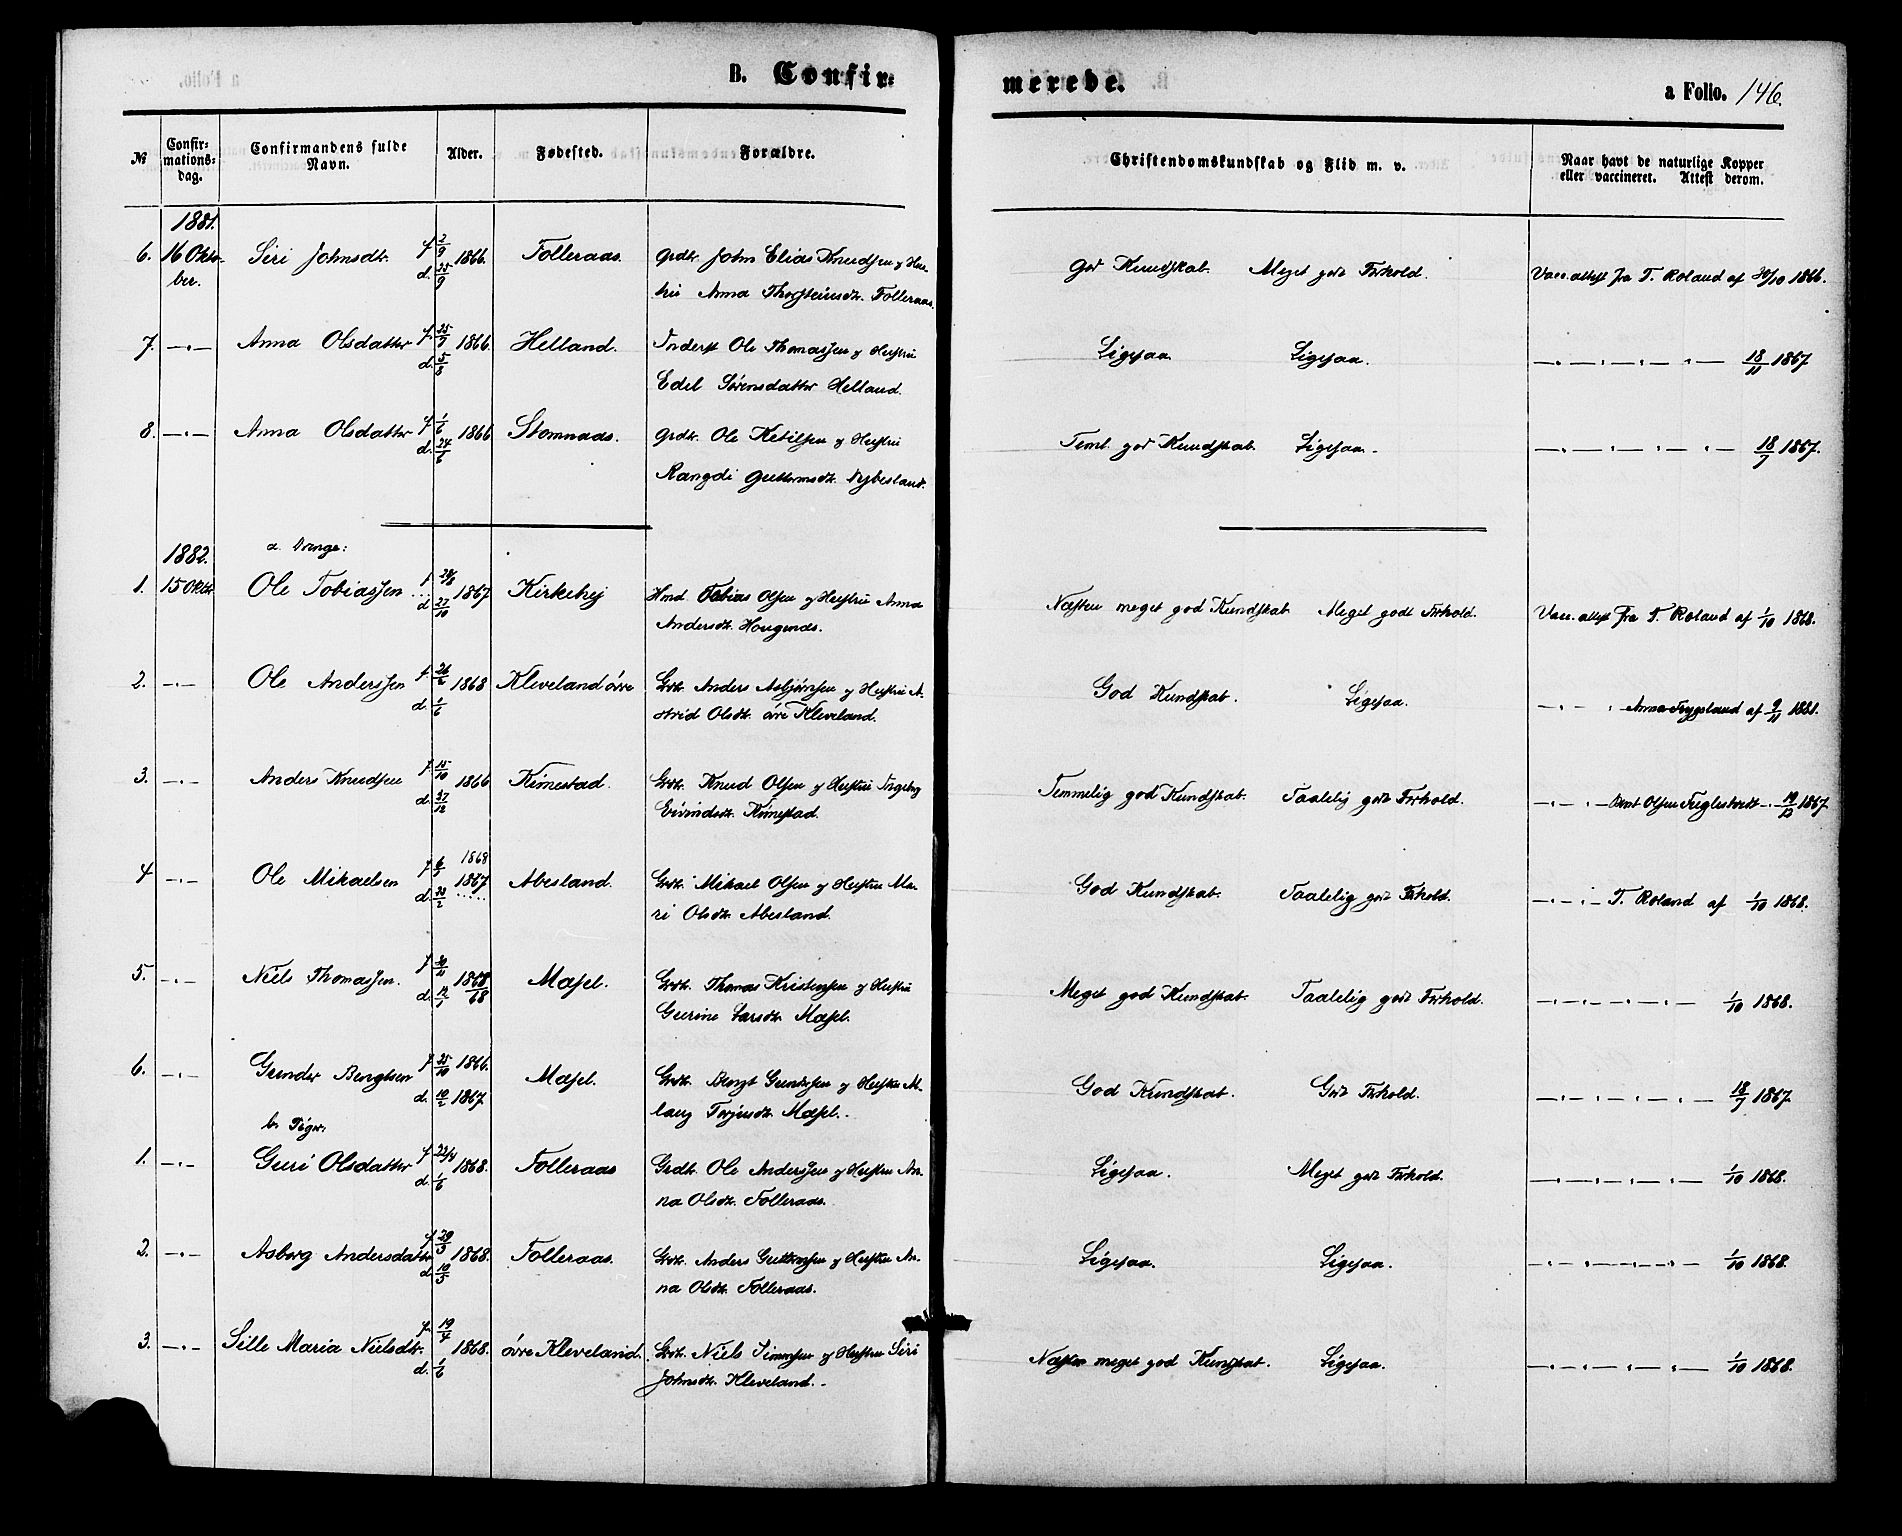 B. Confir-merede.
a Folio. 146.
№ Confirmations-dag. Confirmandens fulde Navn. Alder. Fødested. Forældre. Christendomskundskab og Flid m. v. Naar havt de naturlige Kopper eller vaccineret. Attest derom.
1881.
6. 16 Okto-ber. Siri Johnsdtr. f 2/9 1866. d. 25/9 Folleraas. Grdbr. John Elias Knudsen og Hus-
tru Anna Thorsteinsdtr. Folleraas. God Kundskab. Meget godt Forhold. Vacc. attest fra T. Roland af 30/10 1866.
7. —"— Anna Olsdatter f. 25/7 1866. d. 5/8 Helland. Inderst Ole Thomassen og Hustru
Edel Sørensdatter Helland. Ligesaa. Ligesaa. —"—"—"— 18/11 1867
8. —"— Anna Olsdatter f. 1/6 1866 d. 24/6 Stomnaas. Grdbr. Ole Ketilsen og Hustru
Rangdi Guttormsdtr. Nybesland. Teml. god Kundskab. Ligesaa. —"—"—"— 18/7 1867.
1882. a. Drenge:
1. 15 Oktbr. Ole Tobiassen f 28/8 1867 d 27/10 Kirkehej Hmd Tobias Olsen og Hustru Anna
Andersdtr. Haugenas. Næsten meget god Kundskab Meget godt Forhold. Vacc. attest fra T. Roland af 1/10 1868.
2. —"— Ole Anderssen f. 26/2 1868 d. 1/6 Kleveland øvre Grbr. Anders Asbjørnsen og Hustru A-
strid Olsdtr. øvre Kleveland. God Kundskab. Ligesaa. —"— " Anna Trygsland af 9/11 1881.
3. —"— Anders Knudsen f 15/10 1866 d. 27/12 Kimestad. Grbr. Knud Olsen og Hustru Ingeborg
Eivindsdtr. Kimestad. Temmelig god Kundskab. Taalelig godt Forhold. —"—"— Olsen 1867
4 —"— Ole Mikaelsen 1868 1867 Abesland. Grbr. Mikael Olsen og Hustru Ma-
ri Olsdtr. Abesland. God Kundskab. Taalelig godt Forhold. —"—"— T. Roland af 1/10 1868.
5. —"— Niels Thomassen. f 1868/68 Mæsel. Grbr. Thomas Kristensen og Hustru
Gurine Larsdtr. Mæsel. Meget god Kundskab. Taalelig godt Forhold. —"—"—"— 1/10 1868.
6. —"— Gunder Bengtsen f 25/10 1866. d. 10/2 1867 Mæsel. Grbr. Bengt Gundersen og Hustru A-
laug Terjesdtr. Mæsel. God Kundskab. Godt Forhold. —"—"—"— 18/7 1867.
b. Piger:
1. —"— Guri Olsdatter f 22/4 1868. d. 1/6 Folleraas Grdbr. Ole Anderssen og Hustru An-
na Olsdtr. Folleraas. Ligesaa. Meget godt Forhold. —"—"—"— 1/10 1868.
2. —"— Asborg Andersdatter f. 29/3 1868. d. 10/5 Folleraas. Grbr. Anders Guttormsen og Hustru An-
na Olsdtr. Folleraas. Ligesaa. Ligesaa. —"—"—"— 1/10 1868.
3. —"— Sille Maria Nielsdtr. f. 19/4 1868. d. 1/6 øvre Kleveland. Grbr. Niels Simonsen og Hustru Siri
Johnsdtr. Kleveland. Næsten meget god Kundskab. Ligesaa. —"—"—"— 1/10 1868.